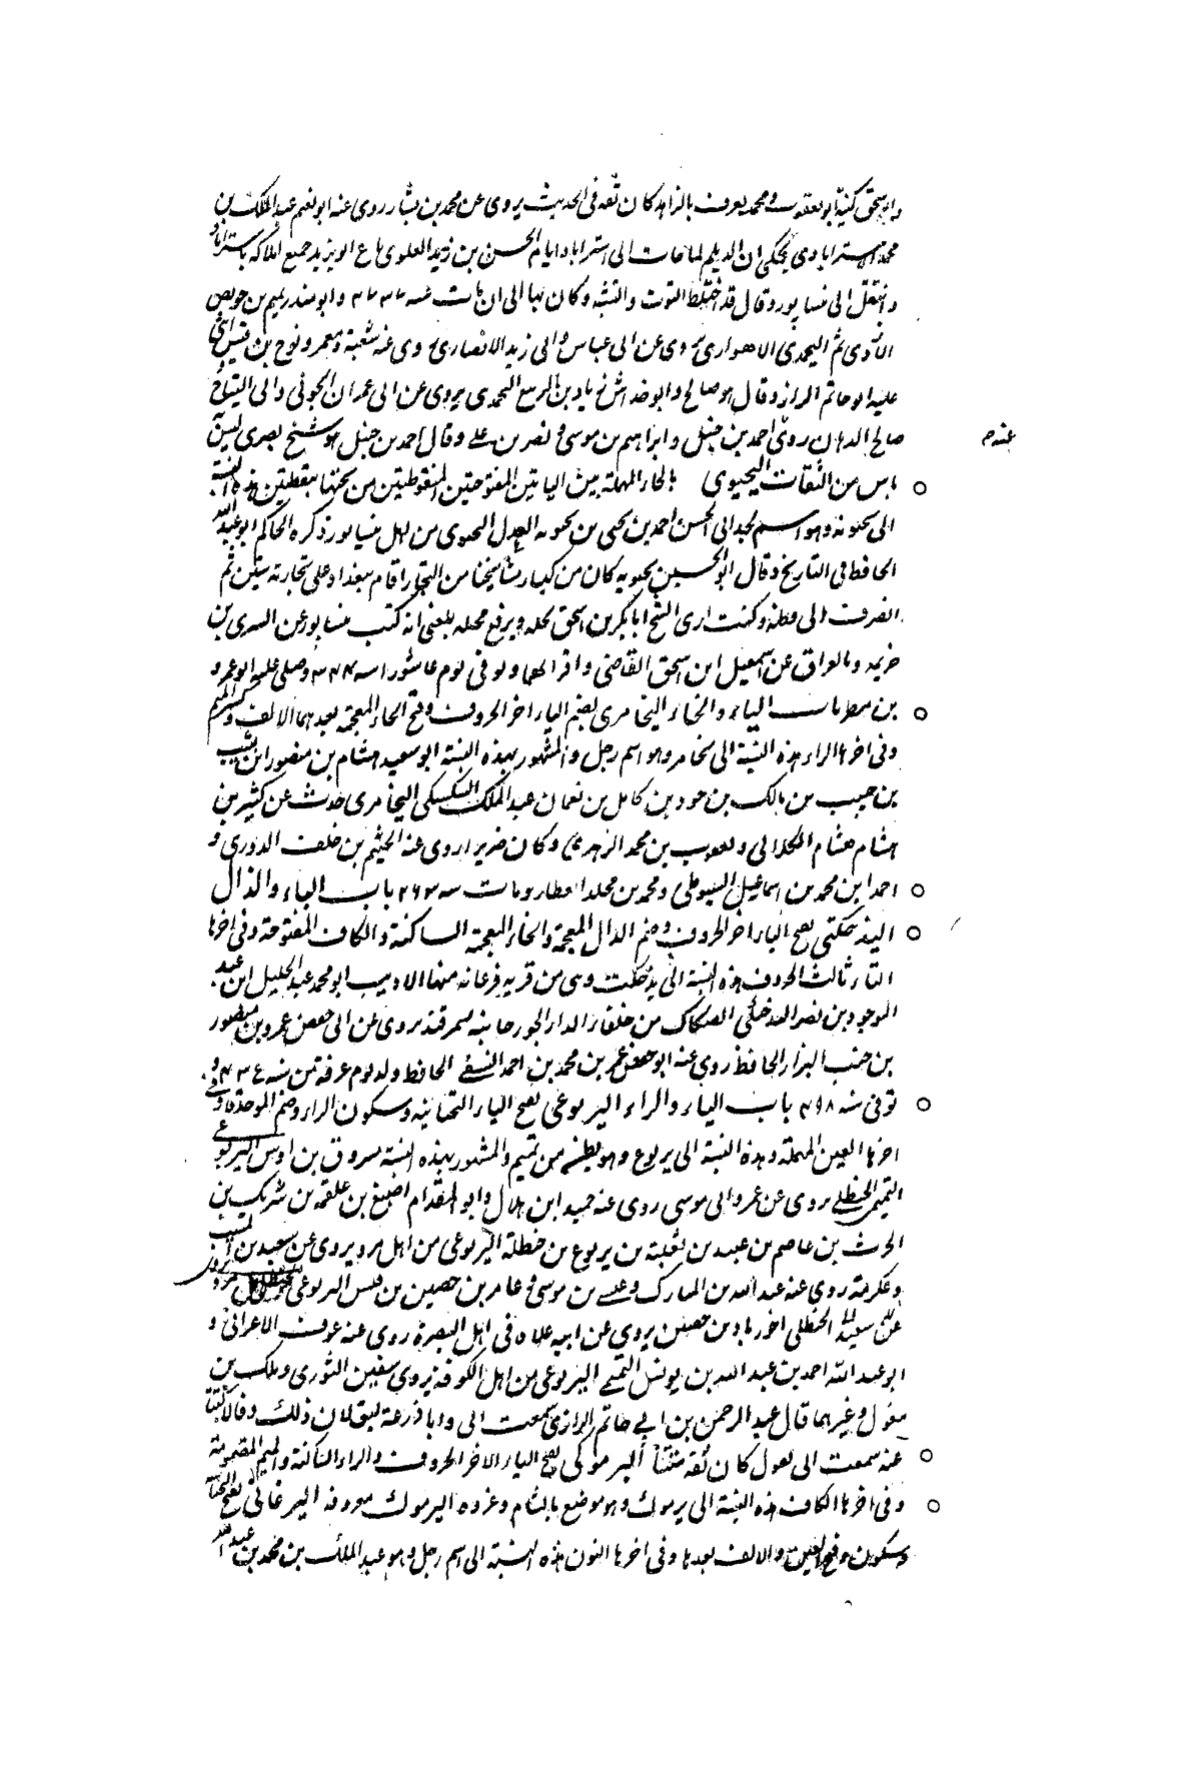 واسحق كنيته ابو يعقوب ومحمد يعرف بالزاهد كان ثقه فى الحديث يروى عن محمد بن بشار روى عنه ابو نعيم عبد الملك بن
محمد الاسترابادى يحكى ان الديلم لما جاءت الى استراباد ايام الحسن بن زيد العلوى باع ابو يزيد جميع املاكه باستراباد
وانتقل الى نيسابور وقال قد اختلط القوت والشبه وكان بها الى ان مات سنه وابو منذر يميم بن حويص
الازدى ثم اليحمدى الاهوازى روى عن ابى عباس وابى زيد الانصارى روى عنه شعبة ومعمر ونوح بن قيس اثنى
عليه ابو حاتم الرازى وقال هو صالح وابو خداش زياد بن الربيع اليحمدى يروى عن ابى عمران الجونى وابى التياح
صالح الدهان روى احمد بن حنبل وابراهيم بن موسى ونصر بن على وقال احمد بن حنبل هو شيخ بصرى ليس
عندم
باس من الثقات اليحيوى بالحاء المهملة بين اليائين المفتوحتين المنقوطتين من تحتها بنقطتين هذه النسبة
الى يحيويه وهو اسم لجد ابى الحسن احمد بن يحيى بن يحيويه العدل اليحيوى من اهل نيسابور ذكره الحاكم ابو عبد الله
الحافظ فى التاريخ وقال ابو الحسين يحيويه كان من كبار مشايخنا من التجار اقام ببغداد على تجارته سنين ثم
انصرفت الى وطنه وكنت ارى الشيخ ابا بكر بن اسحق يجله ويرفع محله بلغنى انه كتب بنيسابور عن السرى بن
خزيمه وبالعراق عن اسمعيل ابن اسحق القاضى واقرانهما وتوفى يوم عاشورا سنه وصلى عليه ابو عمرو
بن مطر باب الياء والخاء اليخامرى بضم الياء اخر الحروف وفتح الخاء المعجمة بعدهما الالف وكسر الميم
وفى اخرها الراء هذه النسبة الى يخامر وهو اسم رجل والمشهور بهذه النسبة ابو سعيد هشام بن منصور ابن شبيب
بن حبيب بن مالك بن حود بن كامل بن نعمان عبد الملك السكسكى اليخامرى حدث عن كثير بن
هشام هشام الكلابى ويعقوب بن محمد الزهرى وكان ضريرا روى عنه الهيثم بن خلف الدورى و
احمد ابن محمد بن اسماعيل السيوطى ومحمد بن مخلد العطار ومات سنه ٢٦٣ باب الياء والذال
اليذخكتى بفتح الياء اخر الحروف وضم الذال المعجمة والخاء المعجمة الساكنة والكاف المفتوحة وفى اخرها
التاء ثالث الحروف هذه النسبة الى يذخكت وهى من قرية فرغانه منها الاديب ابو محمد عبد الجليل ابن عبد
الموجود بن نصر اليذخكتى الصكاك من خلفاء الدار الجورجانيه بسمرقند يروى عن ابى حفص عمرو بن منصور
بن خنب البزار الحافظ روى عنه ابو حفص عمر بن محمد بن احمد النسفى الحافظ ولد يوم عرفة من سنه ٤٣٤ و
توفى سنه ٤٩٨ باب الياء والراء اليربوعى بفتح الياء التحتانية وسكون الراء وضم الموحدة وفى
اخرها العين المهملة وهذه النسبة الى يربوع وهو بطن من تميم والمشهور بهذه النسبة مسروق بن اوس اليربوعى
التميمى الحنظلى يروى عن عمر وابى موسى روى عنه حميد ابن هلال وابو المقدام اصبغ بن علقمه بن شريك بن
الحرث بن عاصم بن عبيد بن ثعلبة بن يربوع بن حنظلة اليربوعى من اهل مرو يروى عن سعيد بن المسيب
وعكرمة روى عنه عبد الله بن المبارك وعيسى بن موسى وعامر بن حصين بن قيس اليربوعى الحنظلى يروى
عن سعيد الحنظلى اخو زياد بن حصين يروى عن ابيه علاه فى اهل البصرة روى عنه عوف الاعرابى و
ابو عبد الله احمد بن عبد الله بن يونس التميمى اليربوعى من اهل الكوفة يروى سفين الثورى وملك بن
مغول وغيرهما قال عبد الرحمن بن ابى حاتم الرازى سمعت ابى وابا ذرعة يقولان ذلك وقالا كتبنا
عنه سمعت ابى يقول كان ثقه متقنا اليرموكى بفتح الياء الاخر الحروف والراء الساكنة والميم المضمومة
وفى اخرها الكاف هذه النسبة الى يرموك وهو موضع بالشام وغزوه اليرموك معروفه اليرغانى بفتح التحتية
وسكون وفتح الغين والالف بعدها وفى اخرها النون هذه النسبة الى اسم رجل وهو عبد الملك بن محمد بن عبد الله